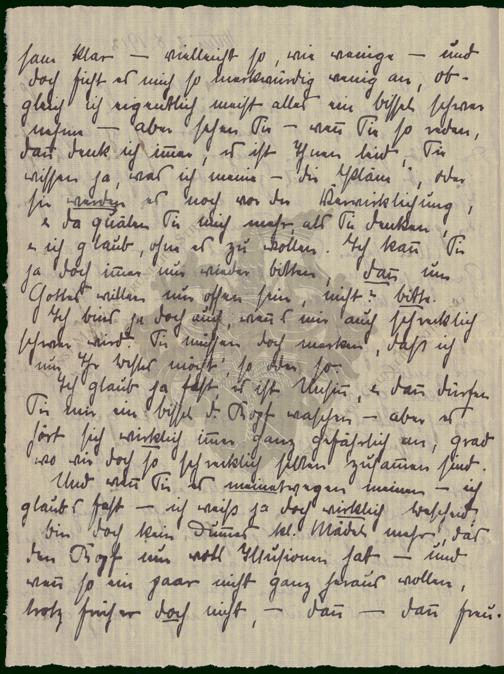 sam klar — vielleicht so, wie wenige — und
doch ficht es mich so merkwürdig wenig an, ob-
gleich ich eigentlich meist alles ein bissel schwer
nehme — aber sehen Sie — wen̄ Sie so reden,
dan̄ denk ich im̄er, es ist Ihnen leid, Sie
wissen ja, was ich meine — die Pläne, oder
sie werden es noch vor der Verwirklichung,
u da quälen Sie mich mehr als Sie denken,
u ich glaub, ohne es zu wollen. Ich kan̄ Sie
ja doch im̄er nur wieder bitten, dan̄ um
Gottes willen nur offen sein, nicht? bitte.
Ich bins ja doch auch, wen̄s mir auch schrecklich
schwer wird. Sie müssen doch merken, daß ich
nur Ihr bestes möcht', so oder so.
Ich glaub ja fast es ist Unsin̄, u dan̄ dürfen
Sie mir ein bissel d. Kopf waschen — aber es
hört sich wirklich im̄er ganz gefährlich an, grad
wo wir doch so schrecklich selten zusam̄en sind.
Und wen̄ Sie es meinetwegen meinen — ich
glaub's fast — ich weiß ja doch wirklich bescheid,
bin doch kein dum̄es kl. Mädel mehr, das
den Kopf nur voll Illusionen hat — und
wen̄ so ein paar nicht ganz heraus wollen,
trotz früher doch nicht, — dan̄ — dan̄ freu-